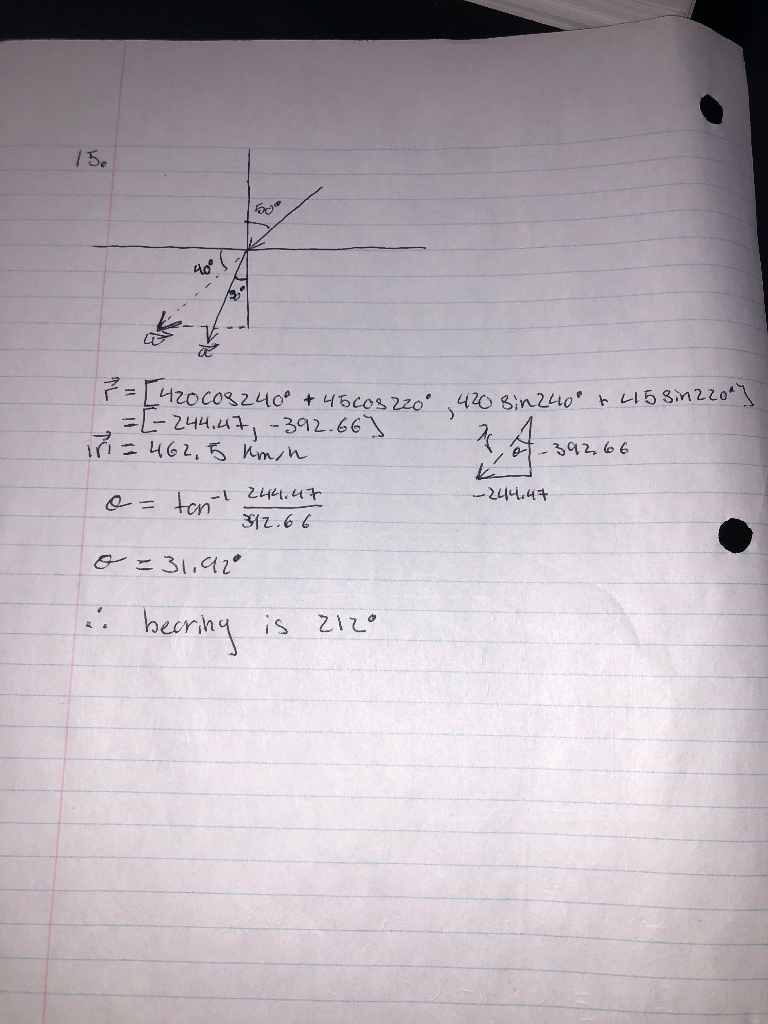 15.
50°
40°
30°
w
a
r = [420cos240° + 45cos220°, 420 sin240° + 45sin220°]
= [-244.47, -392.66]
|r| = 462.5 km/h
r
θ
-392.66
-244.47
θ = tan⁻¹ 244.47/392.66
θ = 31.92°
∴ bearing is 212°